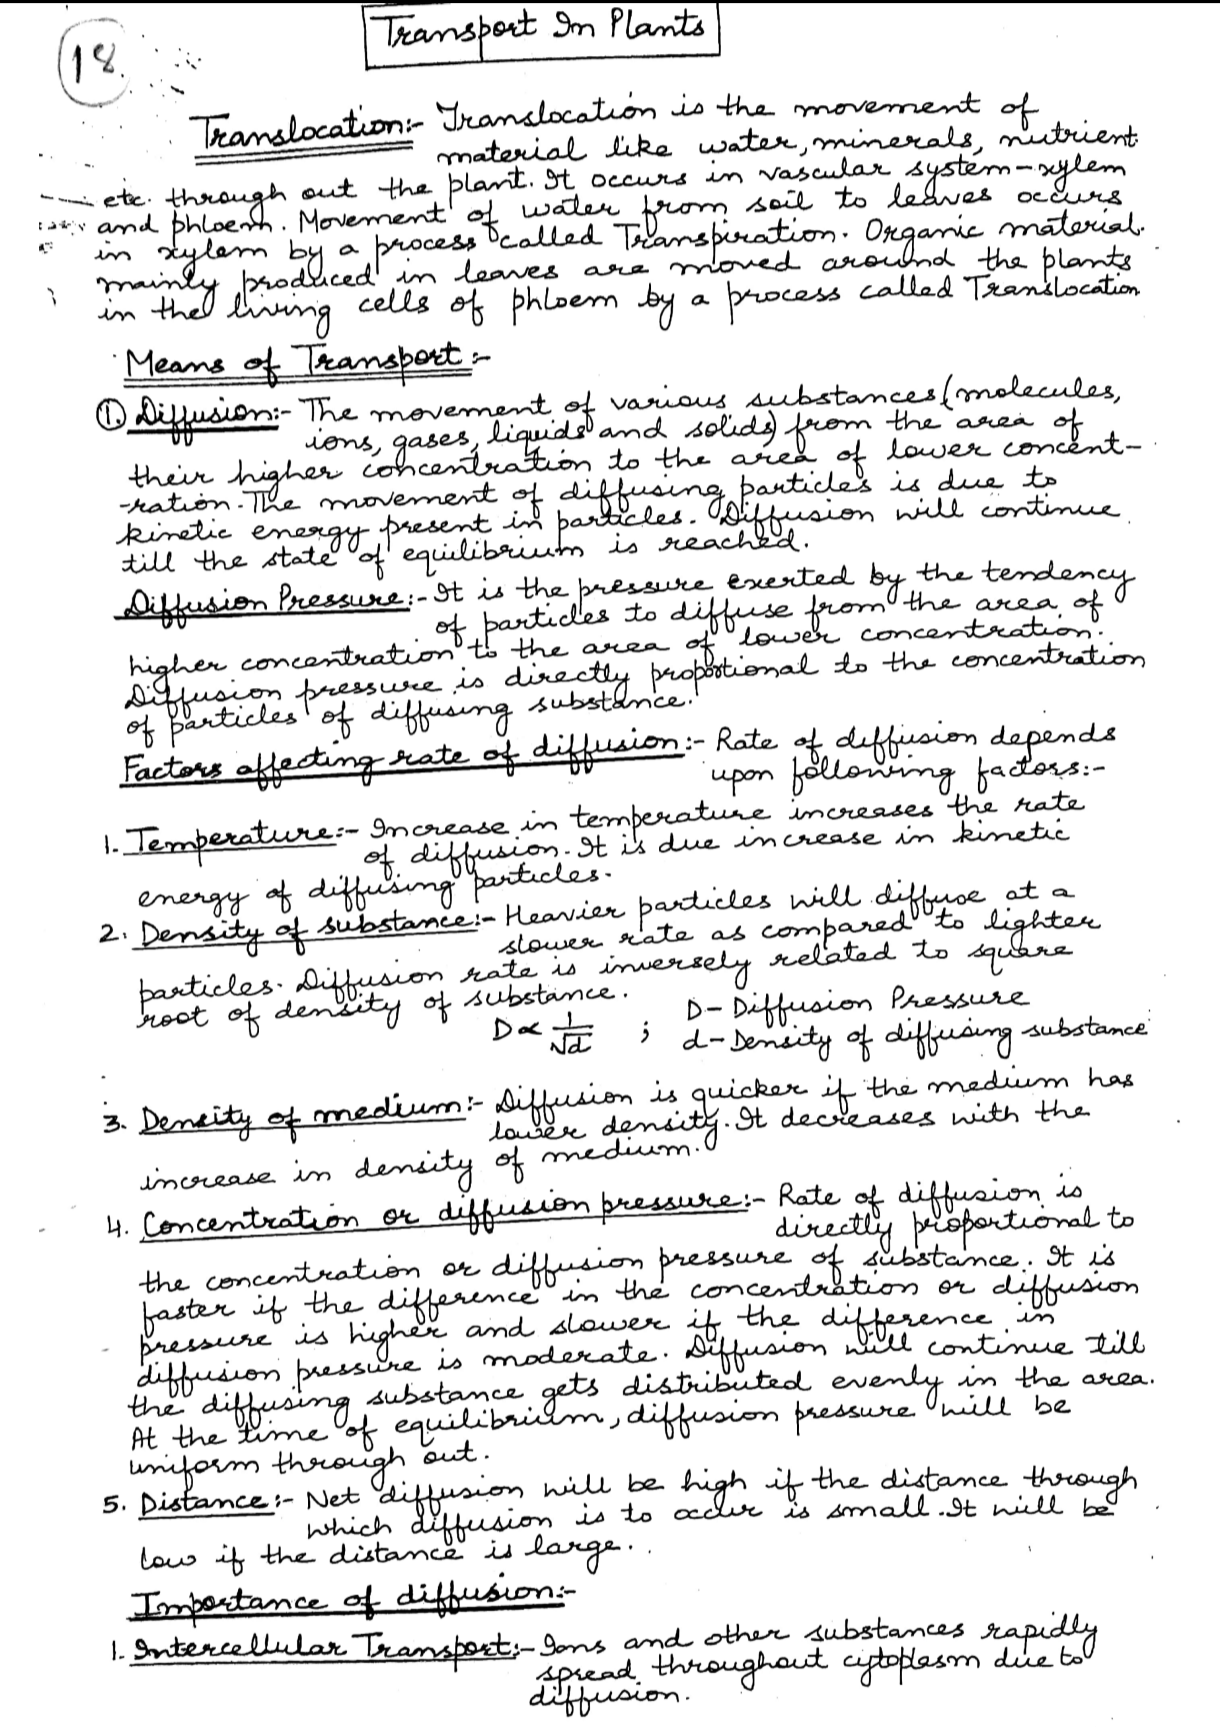 Transport In Plants
18.
Translocation:- Translocation is the movement of
material like water, minerals, nutrient
etc. through out the plant. It occurs in vascular system-xylem
and phloem. Movement of water from soil to leaves occurs
in xylem by a process called Transpiration. Organic material
mainly produced in leaves are moved around the plants
in the living cells of phloem by a process called Translocation
Means of Transport:-
①. Diffusion:- The movement of various substances (molecules,
ions, gases, liquids and solids) from the area of
their higher concentration to the area of lower concent-
-ration. The movement of diffusing particles is due to
kinetic energy present in particles. Diffusion will continue
till the state of equilibrium is reached.
Diffusion Pressure:- It is the pressure exerted by the tendency
of particles to diffuse from the area of
higher concentration to the area of lower concentration.
Diffusion pressure is directly proportional to the concentration
of particles of diffusing substance.
Factors affecting rate of diffusion:- Rate of diffusion depends
upon following factors:-
1. Temperature:- Increase in temperature increases the rate
of diffusion. It is due increase in kinetic
energy of diffusing particles.
2. Density of substance:- Heavier particles will diffuse at a
slower rate as compared to lighter
particles. Diffusion rate is inversely related to square
root of density of substance.
D ∝ 1/√d ; D- Diffusion Pressure
d- Density of diffusing substance
3. Density of medium:- Diffusion is quicker if the medium has
lower density. It decreases with the
increase in density of medium.
4. Concentration or diffusion pressure:- Rate of diffusion is
directly proportional to
the concentration or diffusion pressure of substance. It is
faster if the difference in the concentration or diffusion
pressure is higher and slower if the difference in
diffusion pressure is moderate. Diffusion will continue till
the diffusing substance gets distributed evenly in the area.
At the time of equilibrium, diffusion pressure will be
uniform through out.
5. Distance:- Net diffusion will be high if the distance through
which diffusion is to occur is small. It will be
low if the distance is large.
Importance of diffusion:-
1. Intercellular Transport:- Ions and other substances rapidly
spread throughout cytoplasm due to
diffusion.